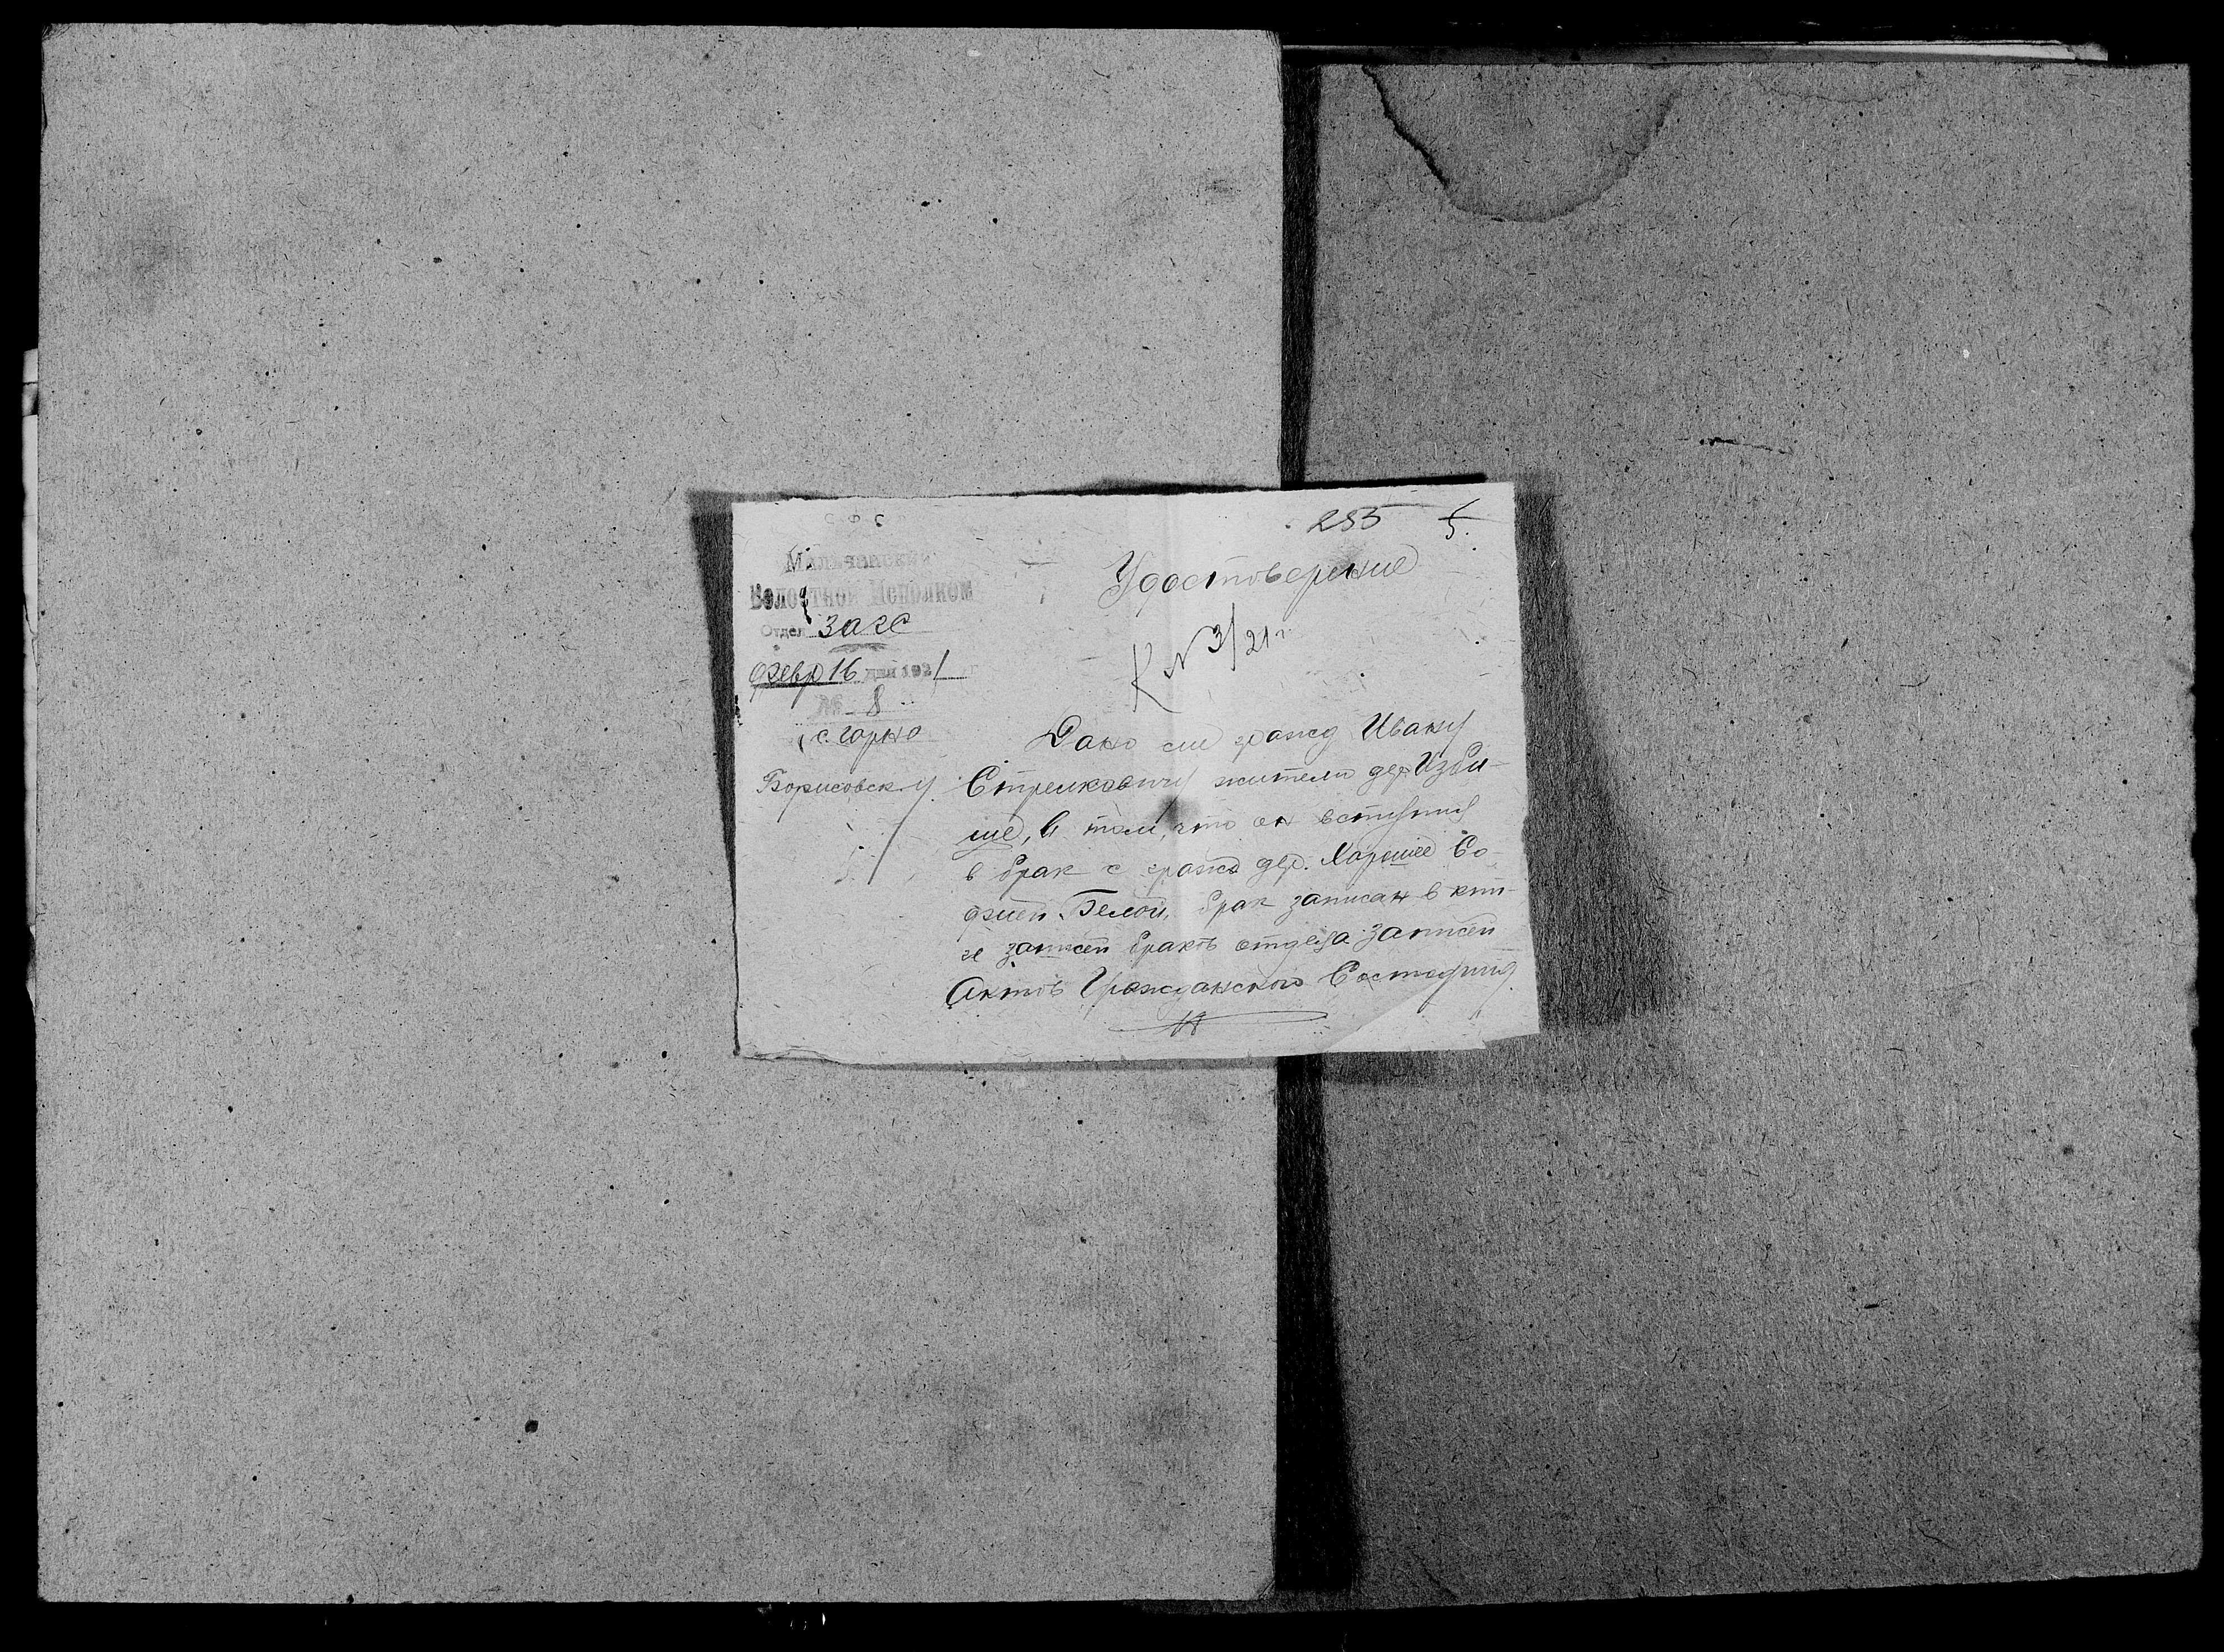 С Ф С
255 5.
Волостной Исполком
Отдел ЗАГС
Февр 16 дня 1921 г
№ 8
Борисовск. у.
Удостоверение
К № 3/21 г.
Дано сие гражд Ивану
Стрелковичу жителю дер. Изби-
ще, в том, что он вступил
в брак с гражд дер. Хорошее Со-
фией Белой, брак записан в кни-
ге записей браков отдела Записей
Актов Гражданского Состояния